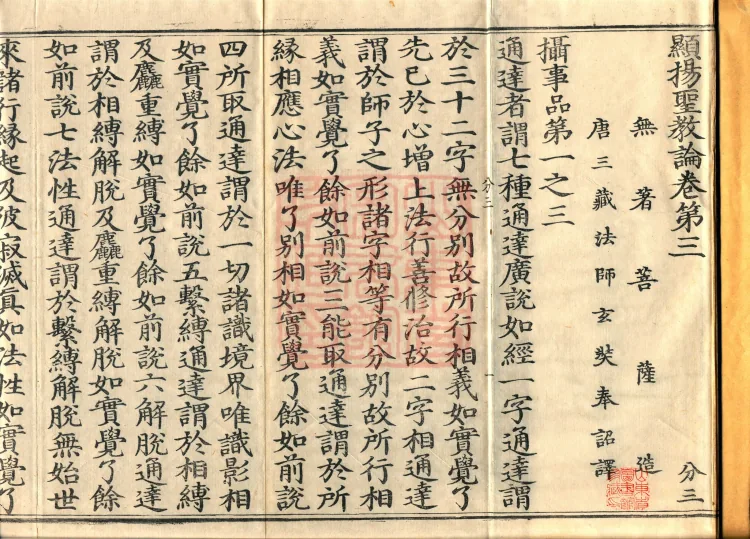 顯揚聖教論卷第三
分三
無著菩薩造
唐三藏法師玄奘奉詔譯
攝事品第一之三
通達者謂七種通達廣說如經一字通達謂
於三十二字無分別故所行相義如實覺了
分三
先已於心增上法行善修治故二字相通達
謂於師子之形諸字相等有分別故所行相
義如實覺了餘如前說三能取通達謂於所
緣相應心法唯了別相如實覺了餘如前說
四所取通達謂於一切諸識境界唯識影相
如實覺了餘如前說五繫縛通達謂於相縛
及麤重縛如實覺了餘如前說六解脫通達
謂於相縛解脫及麤重縛解脫如實覺了餘
如前說七法性通達謂於繫縛解脫無始世
來諸行緣起及彼寂滅真如法性如實覺了